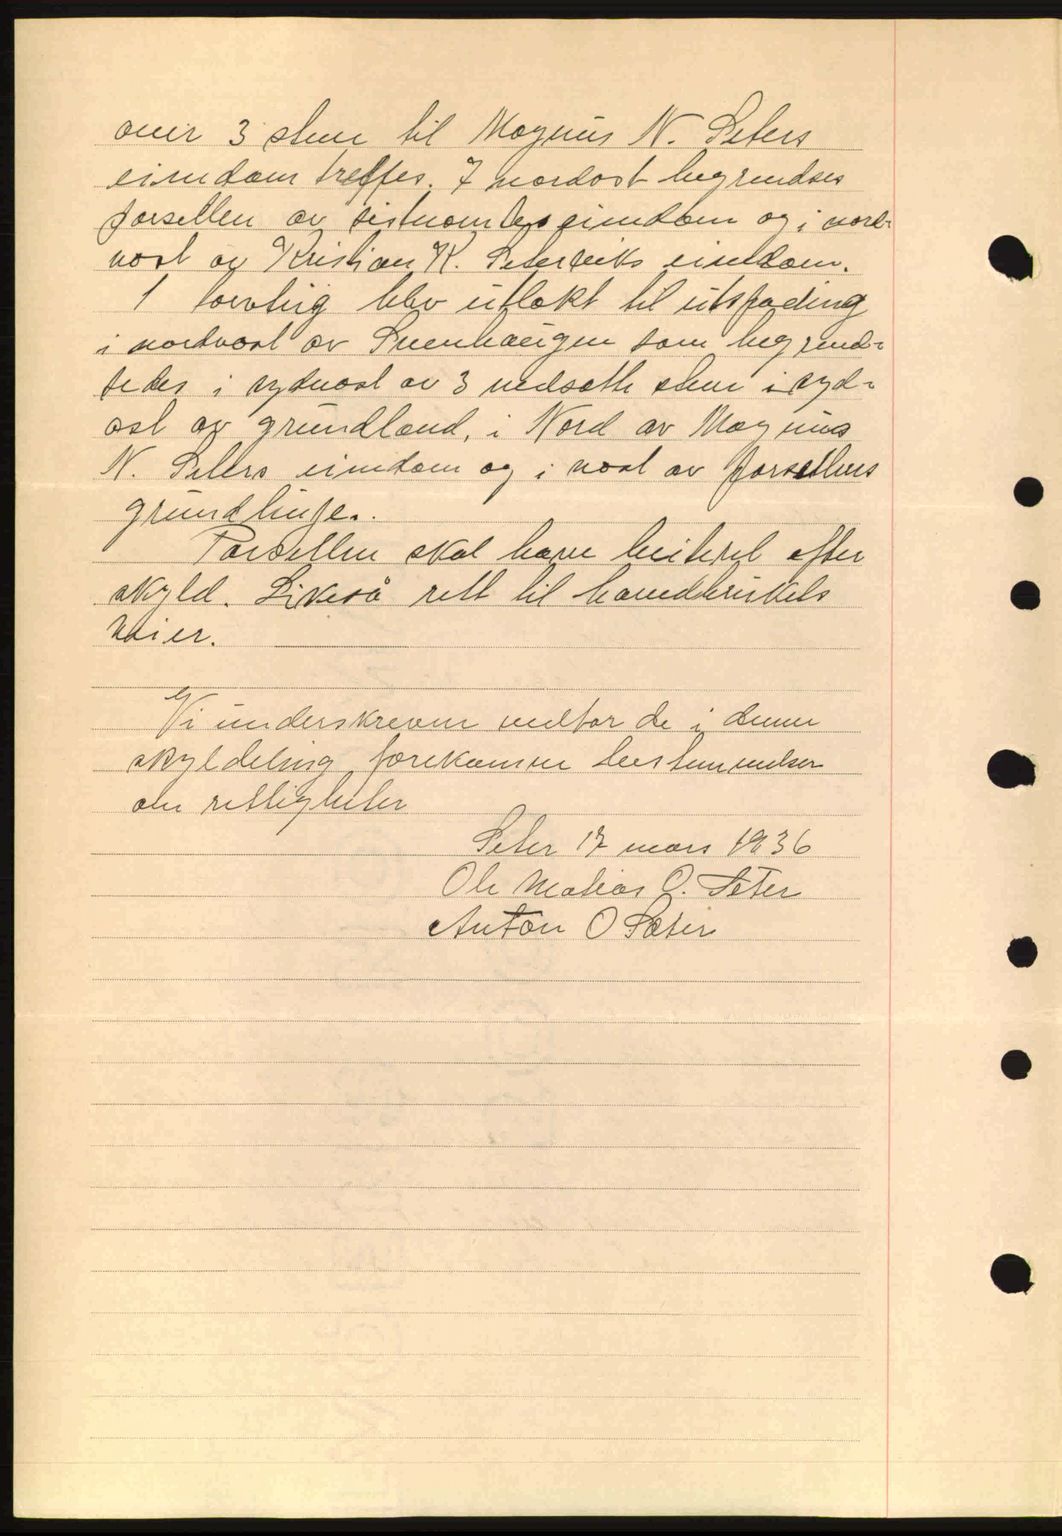 over 3 stene til Magnus N. Seters
eiendom treffes. I nordost begrendses
parsellen av sistnevntes eiendom og i nord-
vest av Kristian K. Seterviks eiendom.
1 torvteig blev utlakt til utspading
i nordvest av Svenhaugen som begrend-
sedes i sydvest av 3 nedsatte stene i syd-
ost av grundland, i Nord av Magnus
N. Seters eiendom og i vest av parsellens
grundlinje.
Parsellen skal have beiteret efter
skyld. Likeså rett til hovedbrukets
veier.
Vi underskrevne vedtar de i denne
skyldeling forekomne bestemmelser
om rettigheter
Seter 17 mars 1936
Ole Matias O. Seter
Anton O Sæter